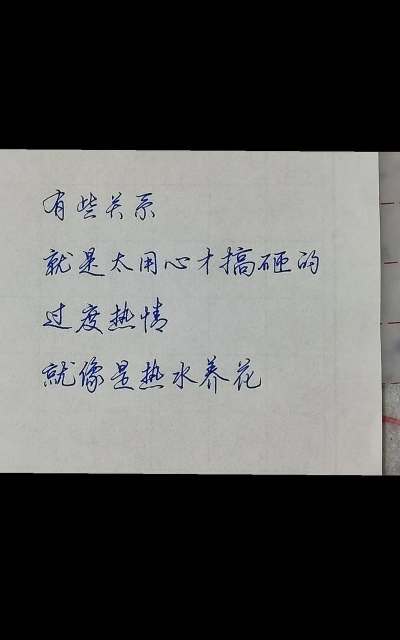 有些关系
就是太用心才搞砸的
过度热情
就像是热水养花